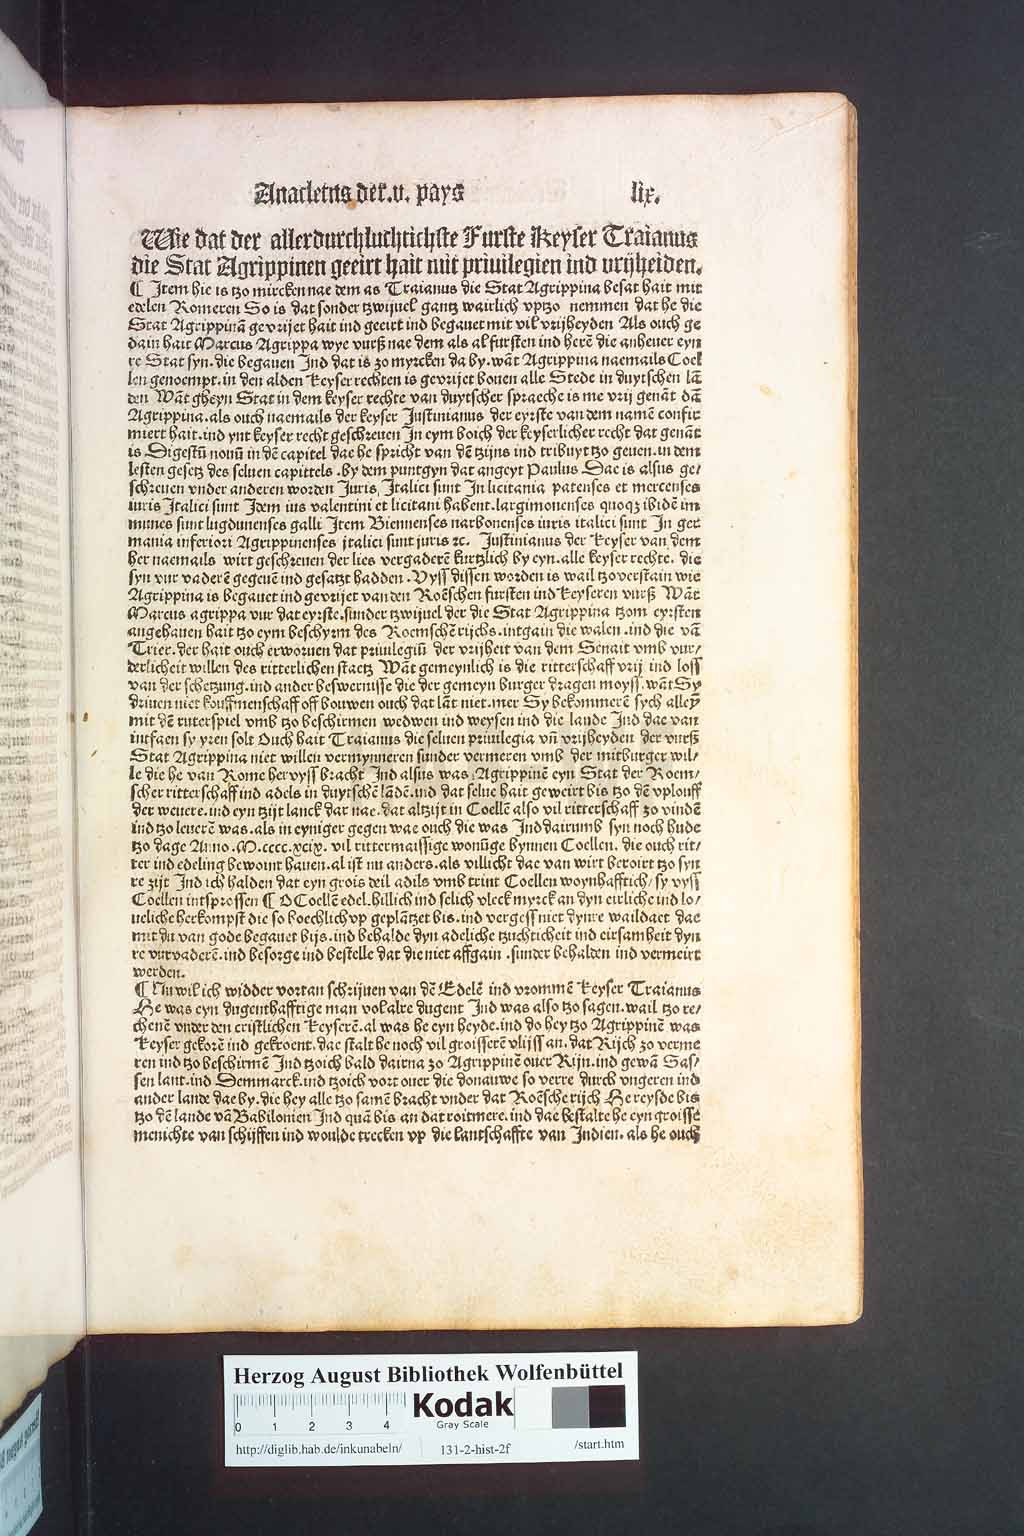 Anacletus der .v. pays lix.
Wie dat der allerdurchluchtichste Furste Keyser Traianus
die Stat Agrippinen geeirt hait mit priuilegien ind vrijheiden.
¶ Item hie is tzo mircken nae dem as Traianus die Stat Agrippina besat hait mit
edelen Romeren So is dat sonder tzwijuel gantz wairlich vptzo nemmen dat he die
Stat Agrippinā gevrijet hait ind geeirt ind begauet mit vil vrijheyden Als ouch ge
dain hait Marcus Agrippa wye vurß nae dem als al fursten ind herē die anheuer eyn
re Stat syn. die begauen Ind dat is zo myrcken da by. wāt Agrippina naemails Coel
len genoempt. in den alden keyser rechten is gevrijet bouen alle Stede in duytschen lā
den Wāt gheyn Stat in dem keyser rechte van duytscher spraeche is me vrij genāt dā
Agrippina. als ouch naemails der keyser Justinianus der eyrste van dem namē confir
miert hait. ind ynt keyser recht geschreuen In eym boich der keyserlicher recht dat genāt
is Digestū nouū in dē capitel dae he spricht van dē tzijns ind tribuyt tzo geuen. in dem
lesten gesetz des seluen capittels. by dem puntgyn dat angeyt Paulus Dae is alsus ge/
schreuen vnder anderen worden Juris Italici sunt In licitania patenses et mercenses
iuris Italici sunt Idem ius valentini et licitani habent. largimonenses quoqȝ ibidē im
munes sunt lugdunenses galli Item Biennenses narbonenses iuris italici sunt In ger
mania inferiori Agrippinenses jtalici sunt juris ꝛc. Justinianus der keyser van dem
her naemails wirt geschreuen der lies vergaderē kurtzlich by eyn. alle keyser rechte. die
syn vur vaderē gegeuē ind gesatzt hadden. Vyss dissen worden is wail tzo verstain wie
Agrippina is begauet ind gevrijet van den Roēschen fursten ind keyseren vurß Wāt
Marcus agrippa vur dat eyrste. sunder tzwijuel der die Stat Agrippina tzom eyrsten
angehauen hait tzo eym beschyrm des Roemschē rijchs. intgain die walen. ind die vā
Trier. der hait ouch erworuen dat priuilegiū der vrijheit van dem Senait vmb vur/
derlicheit willen des ritterlichen staetz Wāt gemeynlich is die ritterschaff vrij ind loss
van der schetzung. ind ander beswernisse die der gemeyn burger dragen moyss. wāt Sy
driuen niet kouffmenschaff off bouwen ouch dat lāt niet. mer Sy bekommerē sych alleȳ
mit dē ritterspiel vmb tzo beschirmen wedwen ind weysen ind die lande Ind dae van
intfaen sy yren solt Ouch hait Traianus die seluen priuilegia vñ vrijheyden der vurß
Stat Agrippina niet willen vermynneren sunder vermeren vmb der mitburger wil/
le die he van Rome her vyss bracht Ind alsus was Agrippinē eyn Stat der Roem/
scher ritterschaff ind adels in duytschē lādē. ind dat selue hait geweirt bis tzo dē vplouff
der weuere. ind eyn tzijt lanck dar nae. dat altzijt in Coellē also vil ritterschaff zo vindē
ind tzo leuerē was. als in eyniger gegen wae ouch die was Ind dairumb syn noch hude
tzo dage Anno. M.cccc.xcix. vil rittermaissige wonūge bynnen Coellen. die ouch rit/
ter ind edeling bewoint hauen. al ist nu anders. als villicht dae van wirt beroirt tzo syn
re zijt Ind ich halden dat eyn grois deil adils vmb trint Coellen woynhafftich/ sy vyss
Coellen intsprossen ¶ O Coellē edel. billich ind selich vleck myrck an dyn eirliche ind lo/
ueliche herkompst die so koechlich vp geplātzet bis. ind vergess niet dynre waildaet dae
mit du van gode begauet bijs. ind behalde dyn adeliche tzuchticheit ind eirsamheit dyn
re vurvaderē. ind besorge ind bestelle dat die niet affgain. sunder behalden ind vermeirt
werden.
¶ Nu wil ich widder vortan schrijuen van dē Edelē ind vrommē keyser Traianus
He was eyn dugenthafftige man vol alre dugent Ind was also tzo sagen. wail tzo re/
chenē vnder den cristlichen keyserē. al was he eyn heyde. ind do hey tzo Agrippinē was
keyser gekorē ind gekroent. dae stalt he noch vil groisserē vlijss an. dat Rijch zo verme
ren ind tzo beschirmē Ind tzoich bald dairna zo Agrippinē ouer Rijn. ind gewā Sas/
sen lant. ind Demmarck. ind tzoich vort ouer die donauwe so verre durch vngeren ind
ander lande dae by. die hey alle tzo samē bracht vnder dat Roēsche rijch He reysde bis
tzo dē lande vā Babilonien Ind quā bis an dat roitmere. ind dae bestalte he eyn groisse
menichte van schijffen ind woulde trecken vp die lantschaffte van Indien. als he ouch
Herzog August Bibliothek Wolfenbüttel
0 1 2 3 4 Kodak
Gray Scale
http://diglib.hab.de/inkunabeln/ 131-2-hist-2f /start.htm